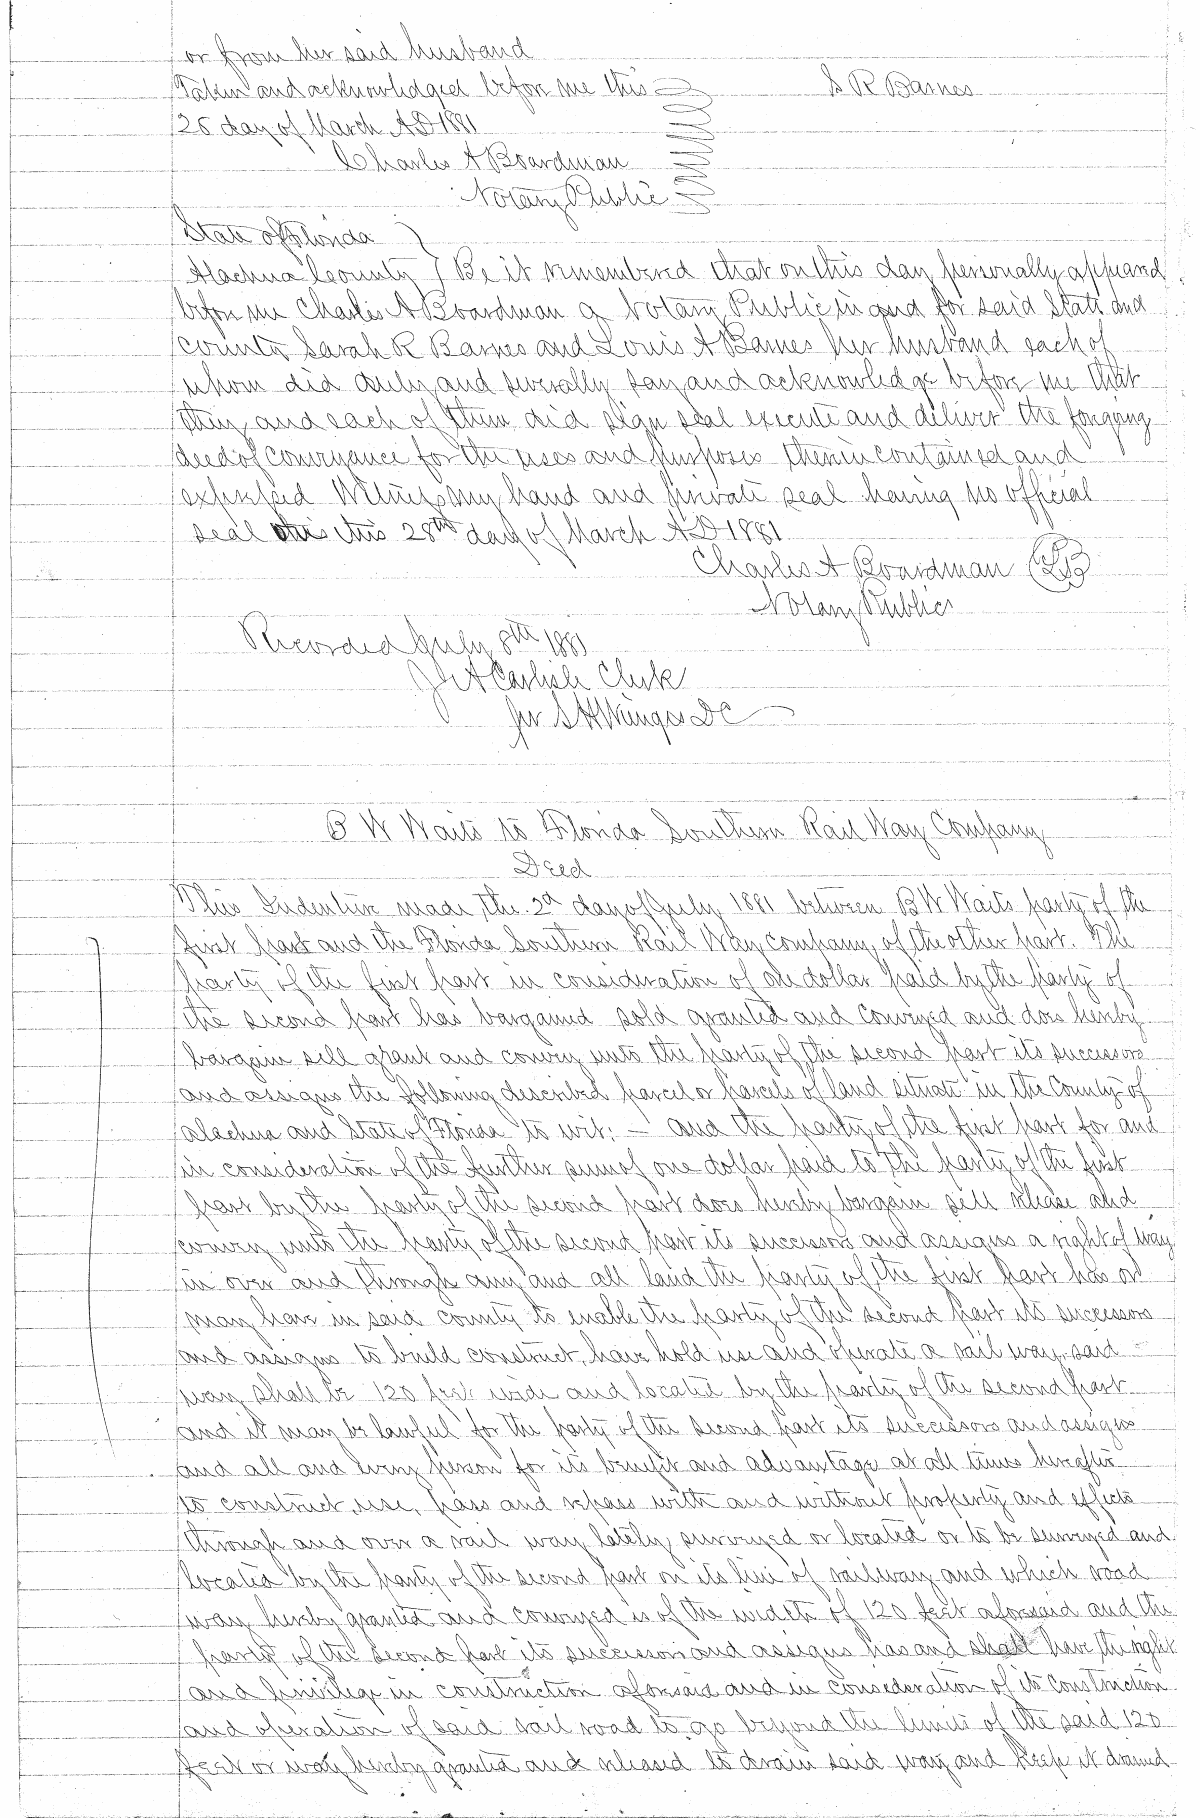 or from her said husband
Taken and acknowledged before me this S R Barnes
28 day of March AD 1881
Charles A Boardman
Notary Public
State of Florida
Alachua County } Be it remembered that on this day personally appeared
before me Charles A Boardman a Notary Public in and for said State and
county Sarah R Barnes and Louis A Barnes her husband each of
whom did duly and severally say and acknowledge before me that
they and each of them did sign seal execute and deliver the foregoing
deed of conveyance for the uses and purposes therein contained and
expressed Witness my hand and private seal having no official
seal this this 28th day of March AD 1881
Charles A Boardman
Notary Public
Recorded July 8th 1881
J A Carlisle Clerk
per S H Wienges DC
B W Waits to Florida Southern Rail Way Company
Deed
This Indenture made the 2d day of July 1881 between B W Waits party of the
first part and the Florida Southern Rail Way company of the other part. The
party of the first part in consideration of one dollar paid by the party of
the second part has bargained sold granted and conveyed and does hereby
bargain sell grant and convey unto the party of the second part its successors
and assigns the following described parcel or parcels of land situate in the County of
Alachua and State of Florida to wit: — and the party of the first part for and
in consideration of the further sum of one dollar paid to the party of the first
part by the party of the second part does hereby bargain sell release and
convey unto the party of the second part its successors and assigns a right of way
in over and through any and all land the party of the first part has or
may have in said county to enable the party of the second part its successors
and assigns to build construct, have hold use and operate a rail way, said
way shall be 120 feet wide and located by the party of the second part
and it may be lawful for the party of the second part its successors and assigns
and all and every person for its benefit and advantage at all times hereafter
to construct, use, pass and repass with and without property and effects
through and over a rail way lately surveyed or located or to be surveyed and
located by the party of the second part on its line of railway and which road
way hereby granted and conveyed is of the width of 120 feet aforesaid and the
party of the second part its successors and assigns has and shall have the right
and privilege in construction aforesaid and in consideration of its construction
and operation of said rail road to go beyond the limits of the said 120
feet or way hereby granted and released to drain said way and keep it drained